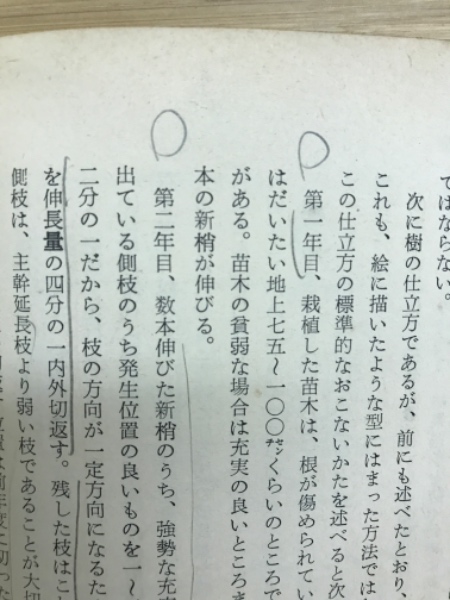 ではならない。
次に樹の仕立方であるが、前にも述べたとおり、
これも、絵に描いたような型にはまった方法では
この仕立方の標準的なおこないかたを述べると次
第一年目、栽植した苗木は、根が傷められてい
はだいたい地上七五〜一〇〇㌢くらいのところで
がある。苗木の貧弱な場合は充実の良いところま
本の新梢が伸びる。
第二年目、数本伸びた新梢のうち、強勢な充
出ている側枝のうち発生位置の良いものを一〜
二分の一だから、枝の方向が一定方向になるた
を伸長量の四分の一内外切返す。残した枝はこ
側枝は、主幹延長枝より弱い枝であることが大切